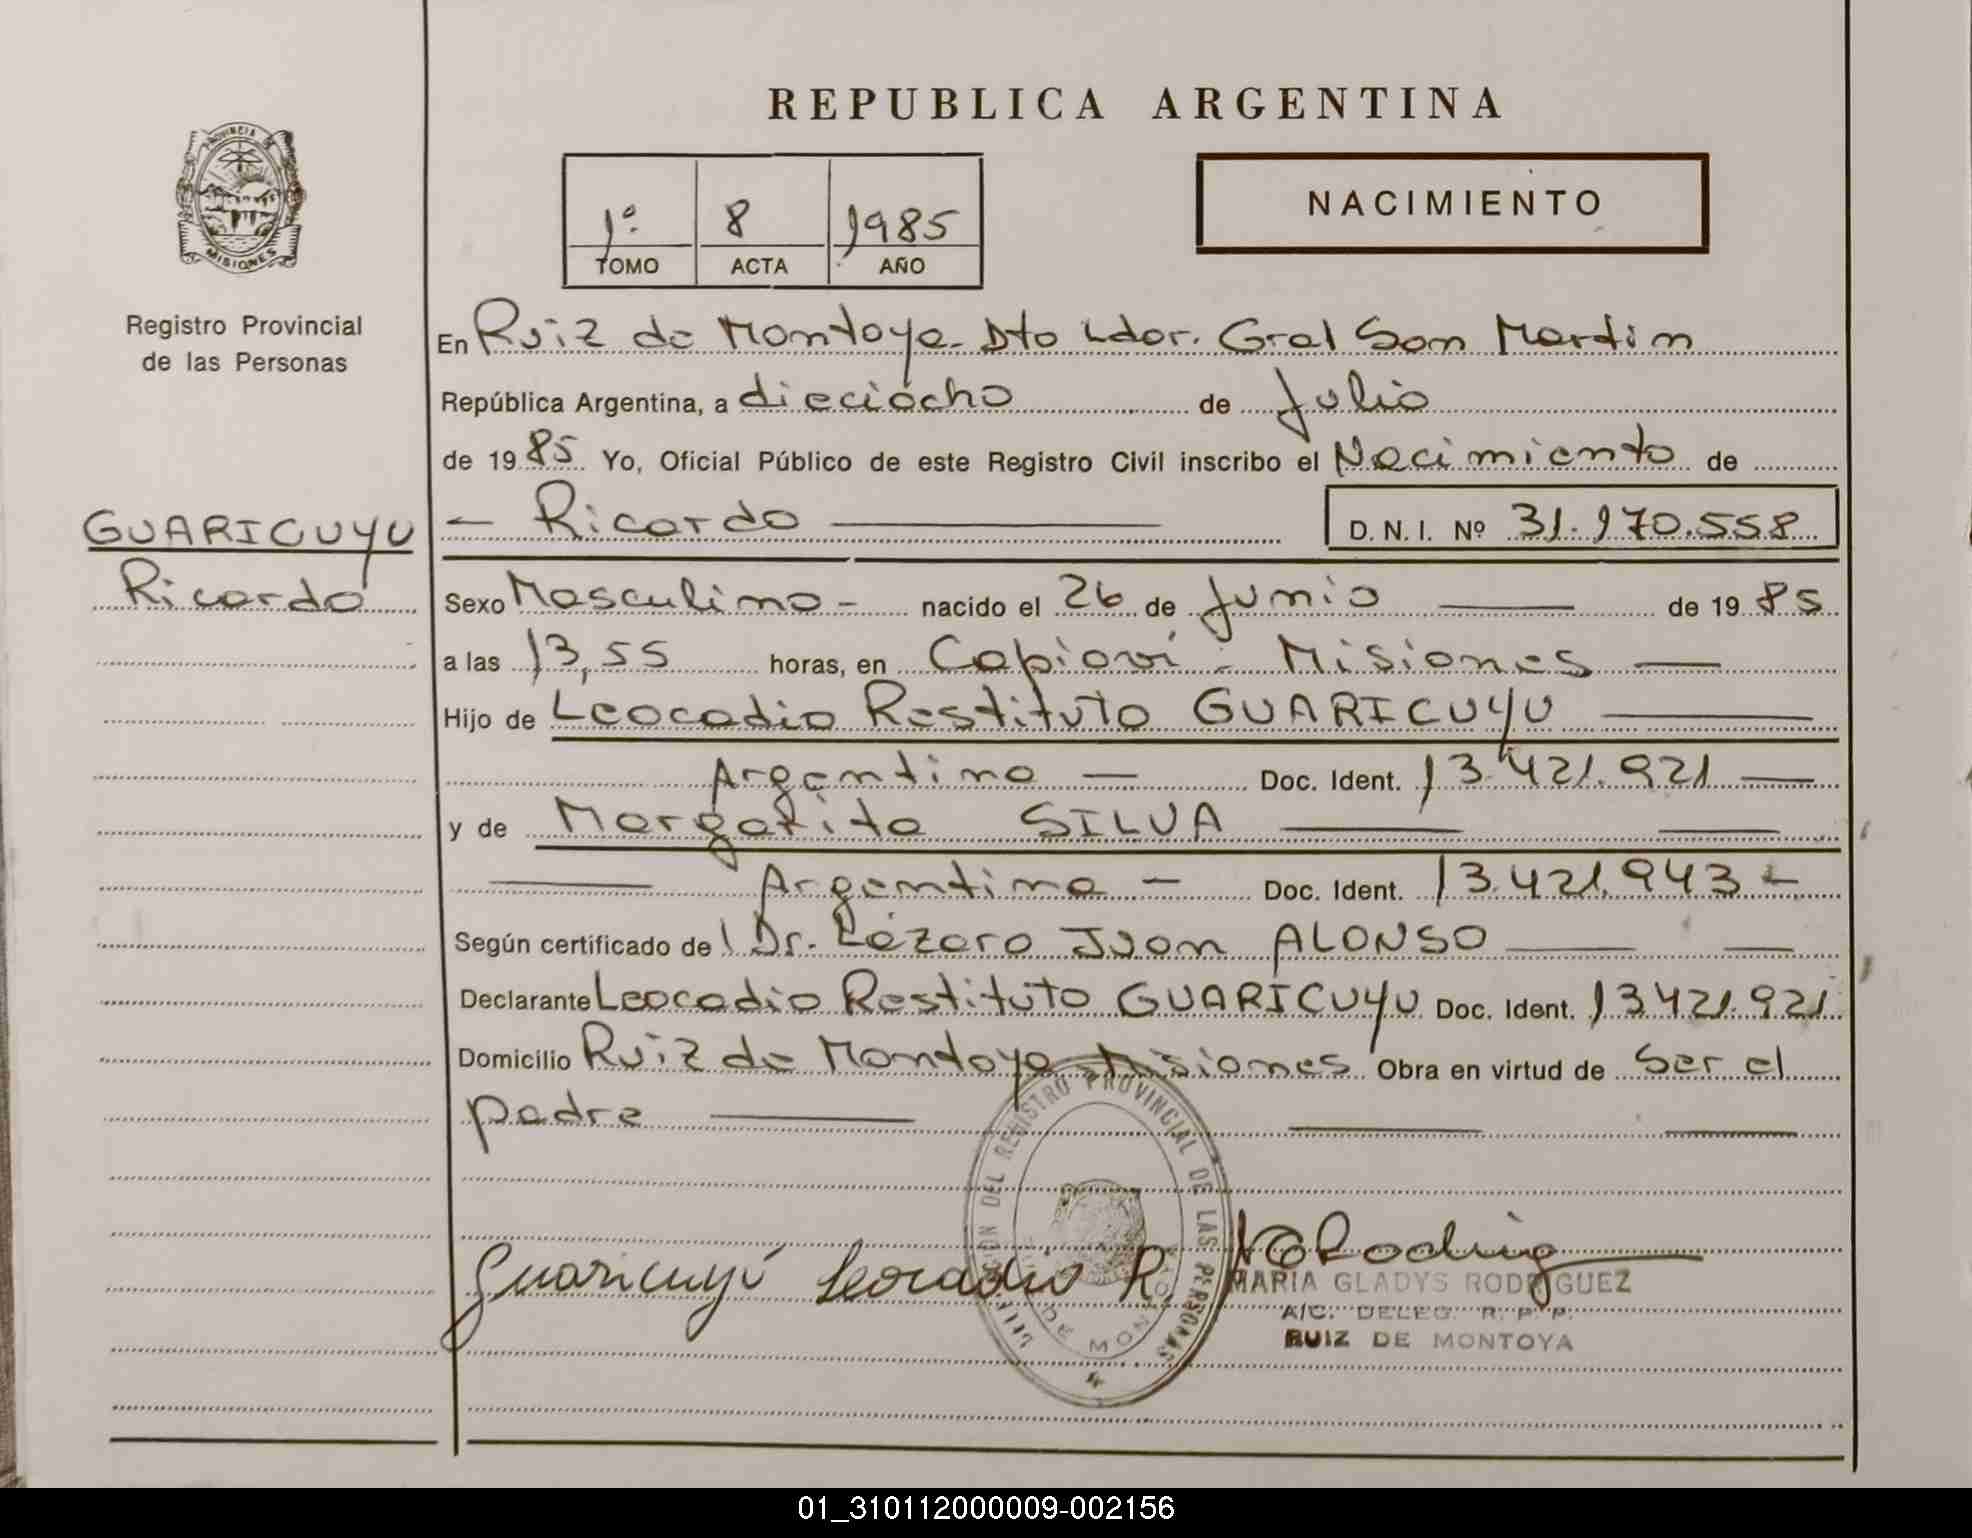 REPUBLICA ARGENTINA
PROVINCIA DE MISIONES
Registro Provincial
de las Personas
1º 8 1985
TOMO ACTA AÑO
NACIMIENTO
En Ruiz de Montoya - Dto Ldor. Gral San Martin
República Argentina, a dieciocho de Julio
de 1985 Yo, Oficial Público de este Registro Civil inscribo el Nacimiento de
GUARICUYU
Ricardo
— Ricardo — D. N. I. Nº 31.170.558
Sexo Masculino - nacido el 26 de Junio — de 1985
a las 13,55 horas, en Capiovi - Misiones —
Hijo de Leocadio Restituto GUARICUYU —
Argentino — Doc. Ident. 13.421.921 —
y de Margarita SILVA — —
— Argentina — Doc. Ident. 13.421.943 -
Según certificado de Dr. Lázaro Juan ALONSO — —
Declarante Leocadio Restituto GUARICUYU Doc. Ident. 13421.921
Domicilio Ruiz de Montoya Misiones Obra en virtud de Ser el
padre — — —
DELEGACION DEL REGISTRO PROVINCIAL DE LAS PERSONAS
DE MONTOYA
Guaricuyú Leocadio R. MGRodrig
MARIA GLADYS RODRIGUEZ
A/C. DELEG. R. P. P.
RUIZ DE MONTOYA
01_310112000009-002156